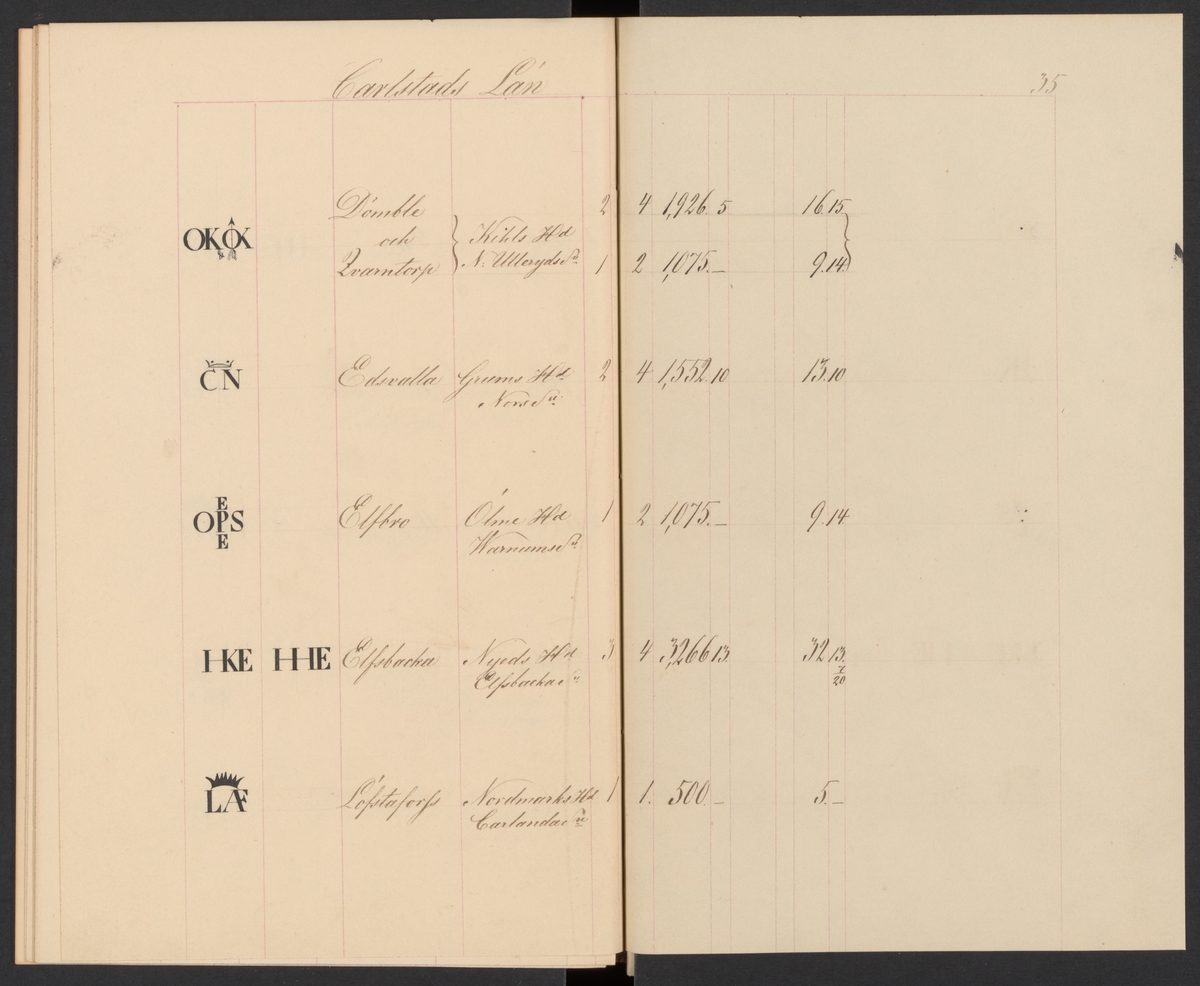 Carlstads Län
35
Dömble 2 4 1,926. 5 16.15.
OKÖK och Kihls Hd
Qvarntorp N: Ulleryds Sn 1 2 1,075.— 9.14.
CN Edsvalla Grums Hd 2 4 1,552.10 13.10
Nors Sn
E
OPS Elfbro Ölme Hd 1 2 1,075.— 9.14
E Warnums Sn
HKE HHE Elfsbacka Nyeds Hd 3 4 3,266 13. 32 13.
Elfsbacka Sn 7/20
LAF Löfstaforss Nordmarks Hd 1 1. 500.— 5.—
Carlanda Sn